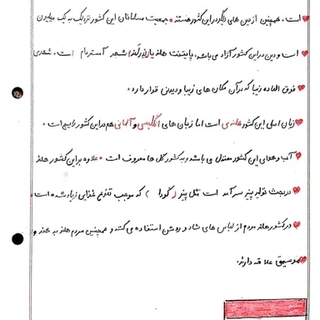 است. همچنین از دین های دیگر در این کشور هستند جمعیت مسلمانان این کشور نزدیک به یک میلیون
است و دین در این کشور آزاد می باشد. پایتخت هلند یا (نیدرلند) شهر آمستردام است. شهری
فوق العاده زیبا که در آن مکان های زیبا و دیدنی قرار دارد.
زبان اصلی این کشور هلندی است اما زبان های انگلیسی و آلمانی هم در این کشور رایج است
آب و هوای این کشور معتدل می باشد و به کشور گل ها معروف است علاوه بر این کشور هلند
در بحث تولید پنیر سرآمد است مثل پنیر (گودا) که موجب تنوع غذایی زیاد شده است
در کشور هلند مردم از لباس های شاد و روشن استفاده می کنند و همچنین مردم هلند به هنر و
موسیقی علاقه دارند.